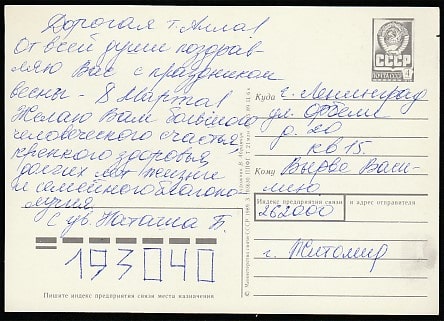 Дорогая т. Алла!
От всей души поздрав
ляю Вас с праздником
весны - 8 Марта!
Желаю Вам большого
человеческого счастья,
крепкого здоровья
долгих лет жизни
и семейного благопо-
лучия.
С ув. Наташа Б.
193040
Пишите индекс предприятия связи места назначения
СССР
4
Куда г. Ленинград
ул. Орбели
д. 20
кв 15.
Кому Вырво Васи-
лию
Индекс предприятия связи и адрес отправителя
262000
г. Житомир
© Министерство связи СССР